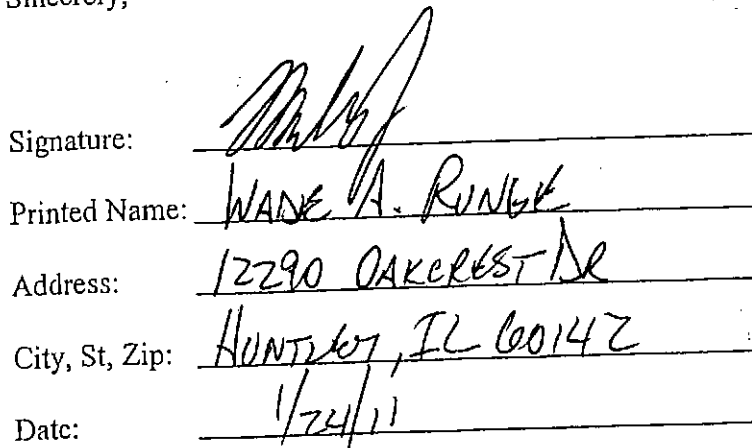 Sincerely,
Signature:
Printed Name: WADE A. RUNGE
Address: 12290 OAKCREST DR
City, St, Zip: HUNTLEY, IL 60142
Date: 1/24/11